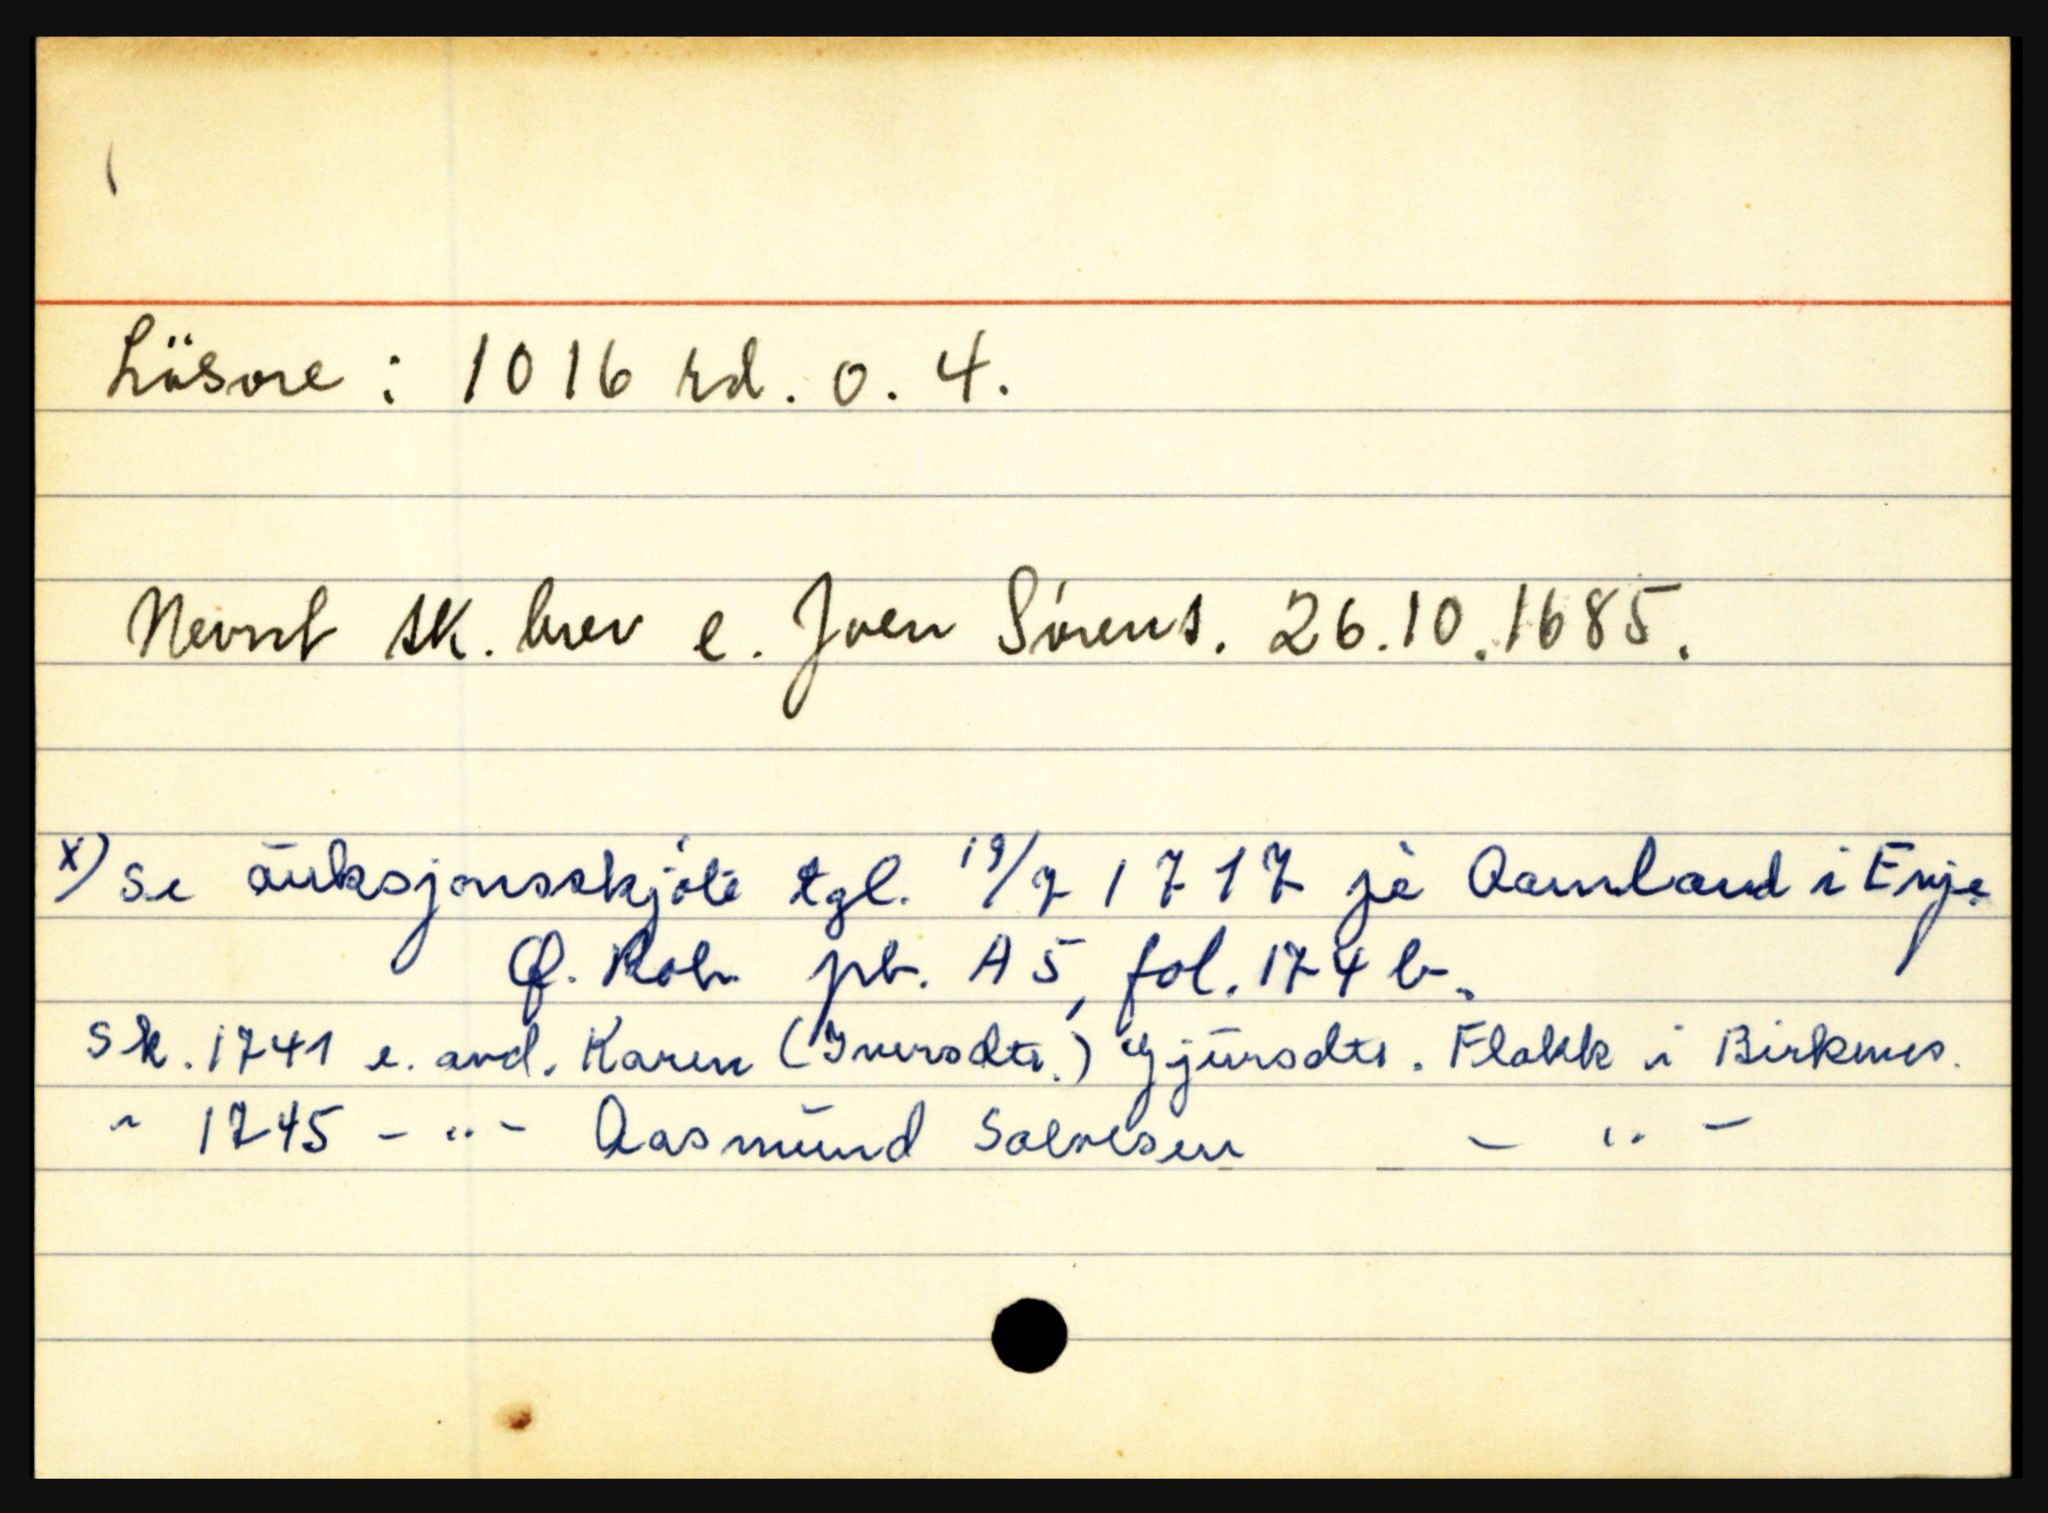 Lösøre : 1016 rd. o. 4.
Nevnt sk. brev e. Joen Sørens. 26.10.1685.
x) Se auksjonsskjøte tgl. 19/7 1717 på Aamland i Evje
Q. Rob. pb. A 5, fol. 174 b.
Sk. 1741 e. avd. Karen (Iversdtr.) Gjursdtr. Flakk i Birkenes.
" 1745 - " - Aasmund Salvesen - " -